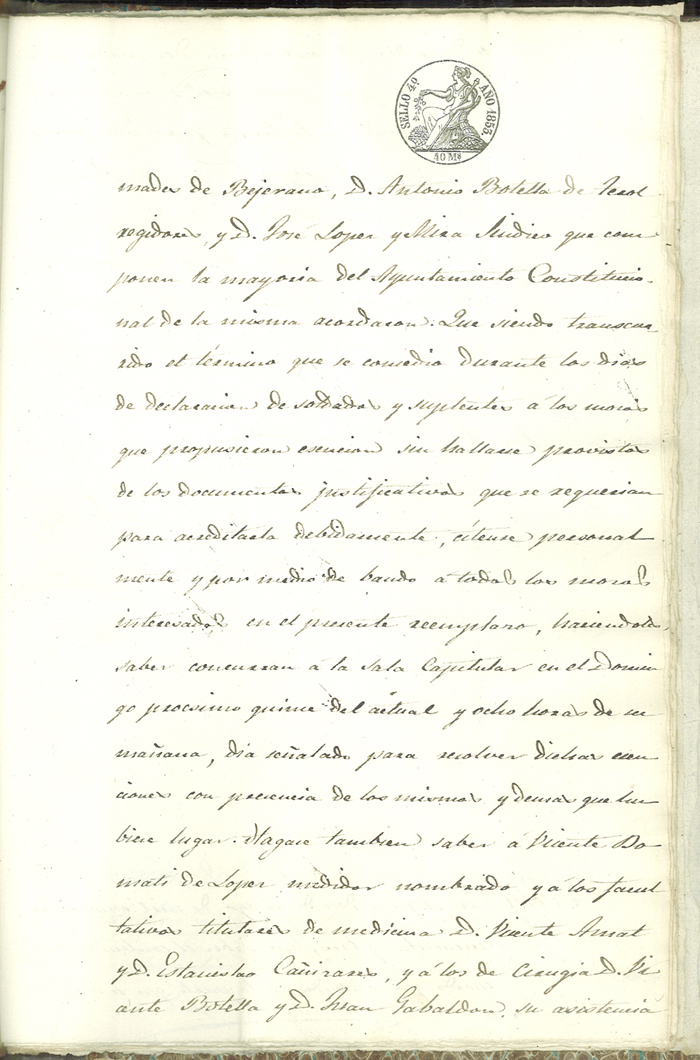 SELLO 4º AÑO 1853.
40 Mˢ
mades de Bejerano, D. Antonio Botella de Terol
regidores, y D. José Loper y Mira Sindico que com
ponen la mayoria del Ayuntamiento Constitucio-
nal de la misma acordaron: Que siendo transcur
rido el término que se consedio durante los dias
de declaracion de soldados y suplentes á los mosos
que propusieron esencion sin hallarse provistos
de los documentos justificativos que se requerian
para acreditarla debidamente, citense personal
mente y por medio de bando á todos los mosos
interesados en el presente reemplaso, haciendoles
saber concurran á la sala Capitular en el Domin
go procsimo quince del actual y ocho horas de su
mañana, dia señalado para resolver dichas esen
ciones con presencia de los mismos y demas que hu
biere lugar. Hagase tambien saber á Vicente Do
mati de Loper medidor nombrado y á los facul
tativos titulares de medicina D. Vicente Amat
y D. Estanislao Cañisares, y á los de Cirugia D. Vi
ente Botella y D. Juan Gabaldon, su asistencia